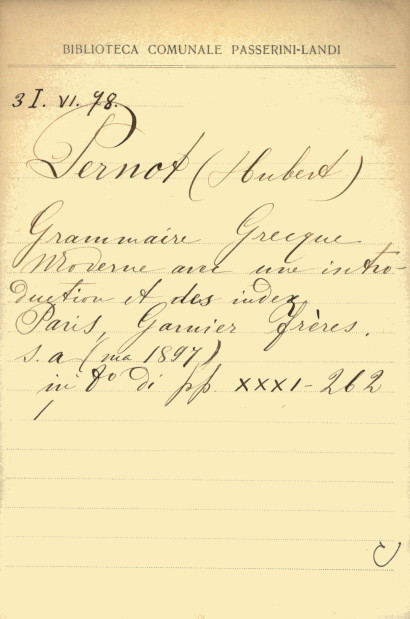 BIBLIOTECA COMUNALE PASSERINI-LANDI
3 I. VI. 78.
Pernot (Hubert)
Grammaire Grecque
Moderne avec une intro-
duction et des index
Paris, Garnier frères.
s. a (ma 1897)
in 8º di pp XXXI-262